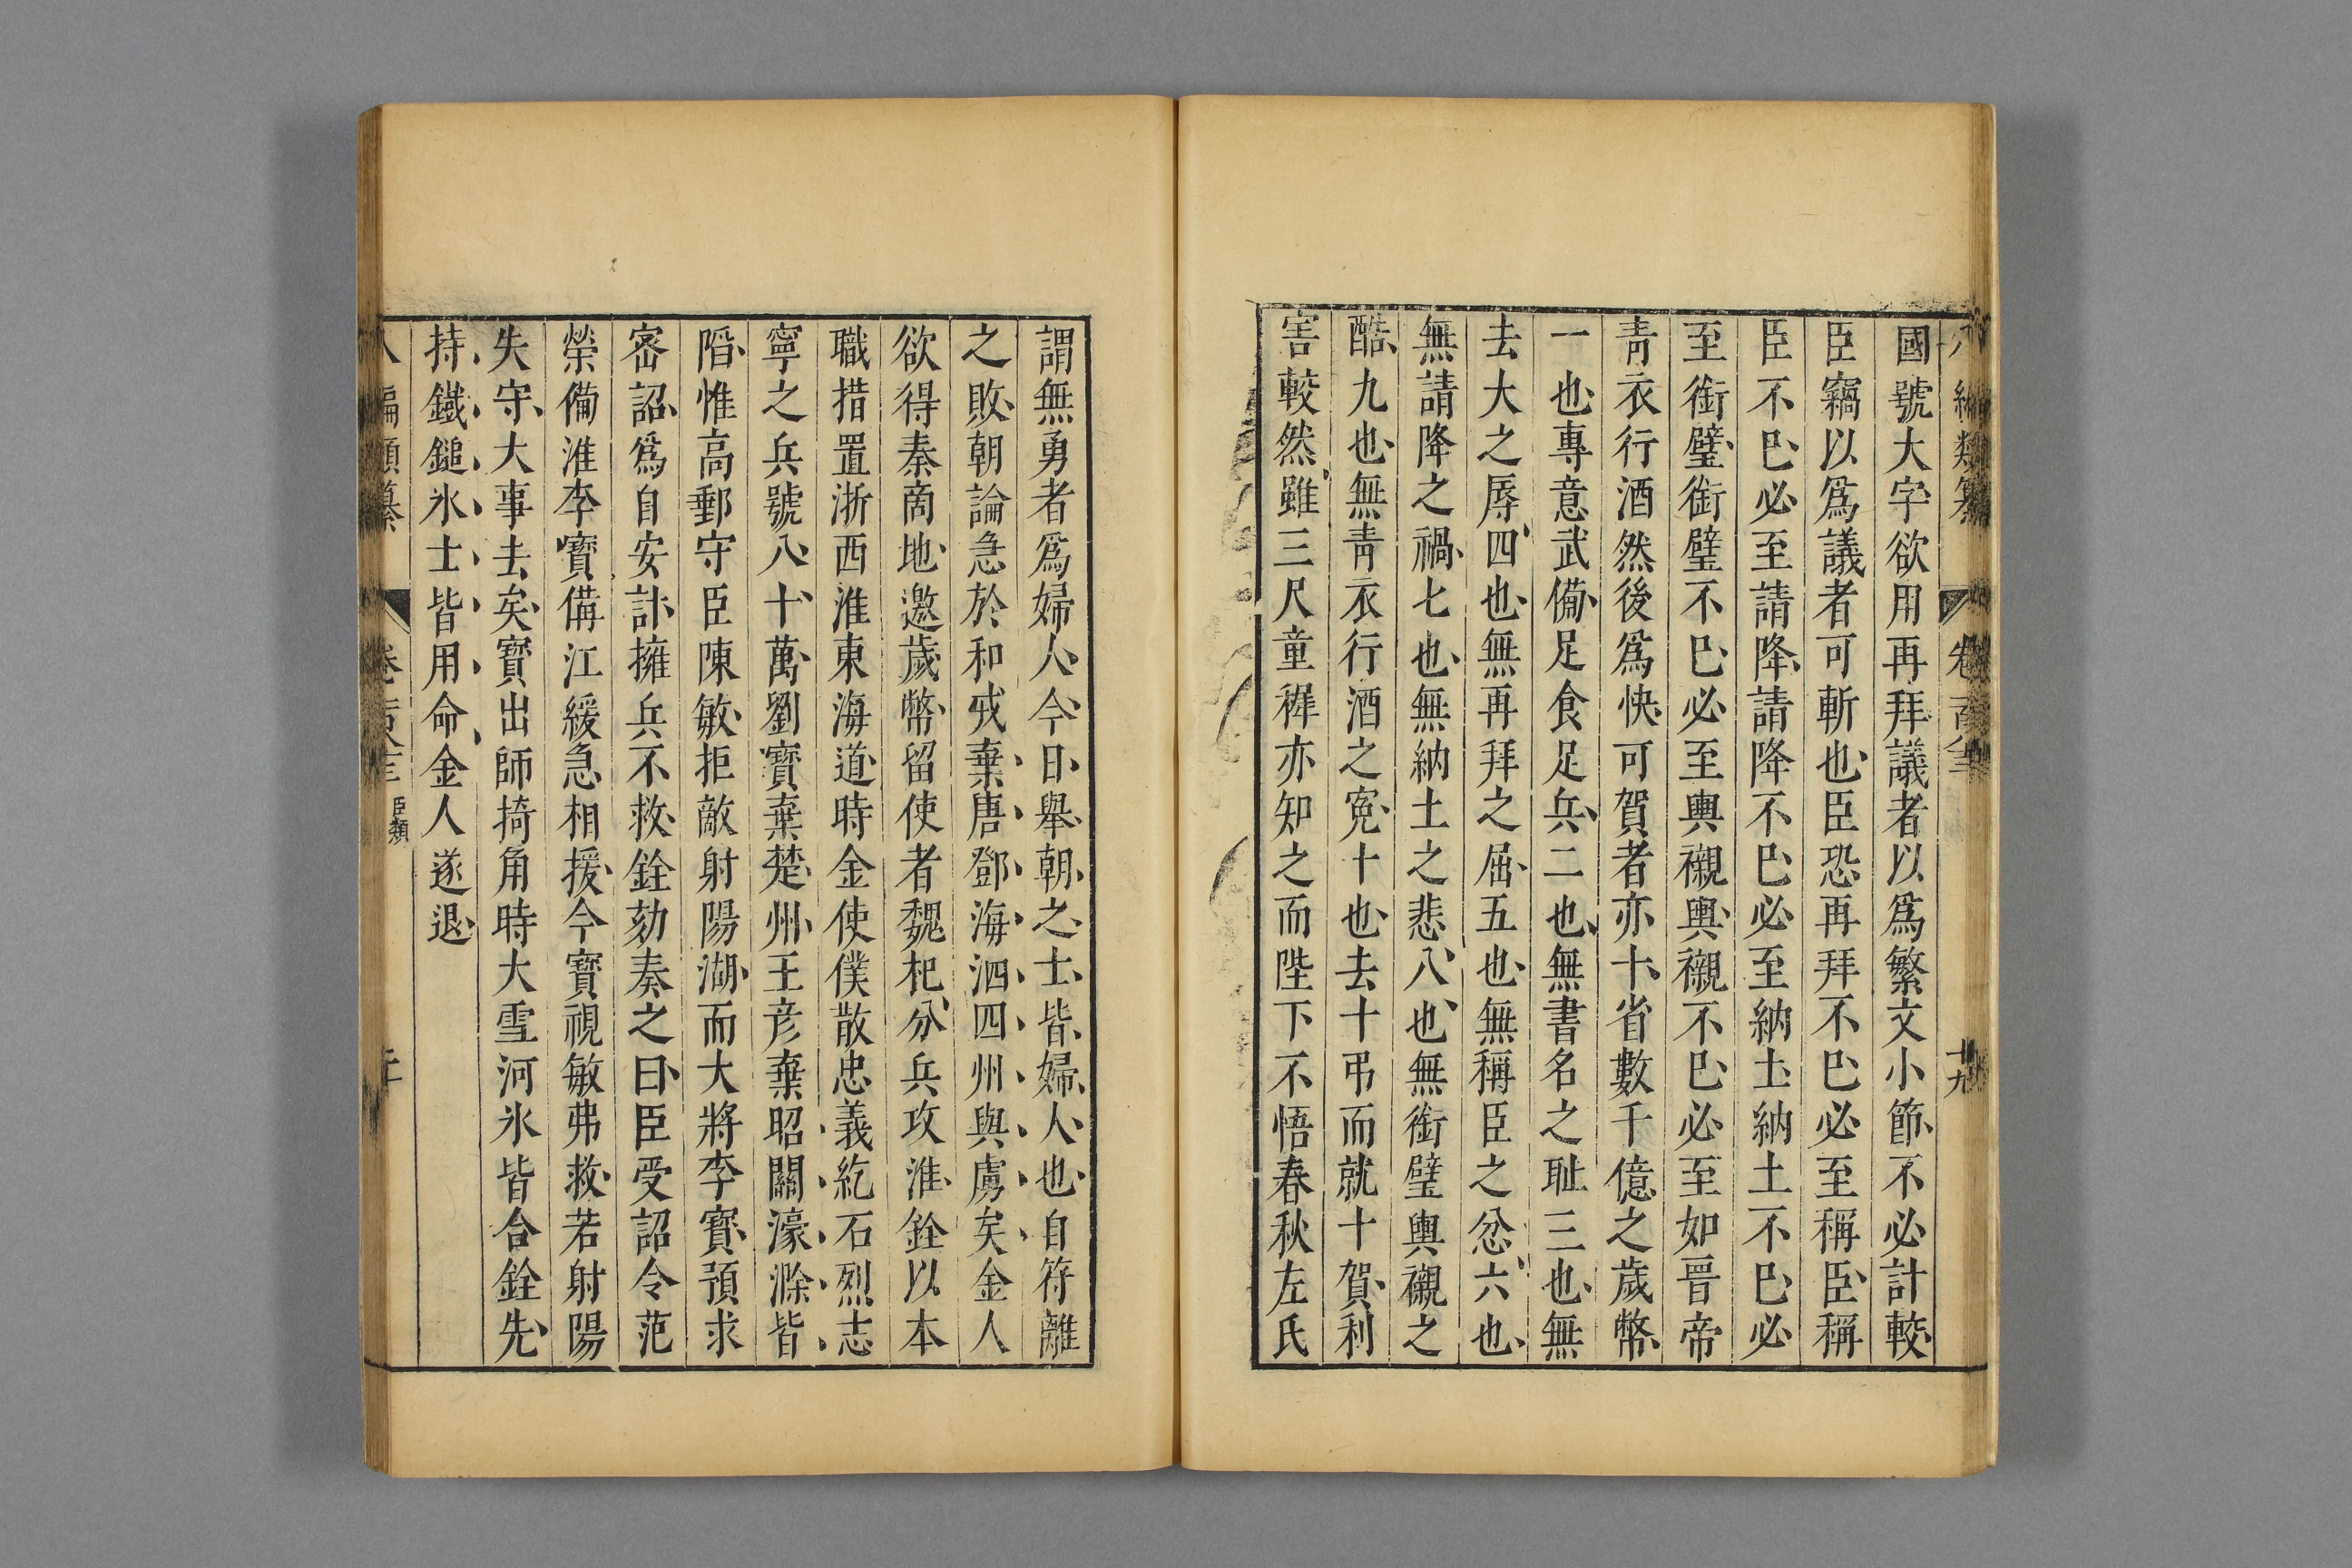 國號大字欲用再拜議者以爲繁文小節不必計較
臣竊以爲議者可斬也臣恐再拜不巳必至稱臣稱
臣不巳必至請降請降不巳必至納土納土不巳必
至銜璧銜璧不巳必至輿櫬輿櫬不巳必至如晉帝
靑衣行酒然後爲快可賀者亦十省數千億之歲幣
一也專意武備足食足兵二也無書名之耻三也無
去大之辱四也無再拜之屈五也無稱臣之忿六也
無請降之禍七也無納土之悲八也無銜璧輿櫬之
酷九也無靑衣行酒之寃十也去十弔而就十賀利
害較然雖三尺童稺亦知之而陛下不悟春秋左氏
謂無勇者爲婦人今日舉朝之士皆婦人也自符離
之敗朝論急於和戎棄唐鄧海泗四州與虜矣金人
欲得秦啇地邀歲幣留使者魏杞分兵攻淮銓以本
職措置浙西淮東海道時金使僕散忠義紇石烈志
寧之兵號八十萬劉寶棄楚州王彦棄昭關濠滁皆
䧟惟高郵守臣陳敏拒敵射陽湖而大將李寶預求
宻詔爲自安計擁兵不救銓劾奏之曰臣受詔令范
榮備淮李寶備江緩急相援今寶視敏弗救若射陽
失守大事去矣寶出師掎角時大雪河氷皆合銓先
持鐵鎚氷士皆用命金人遂退
人編類纂
臣類